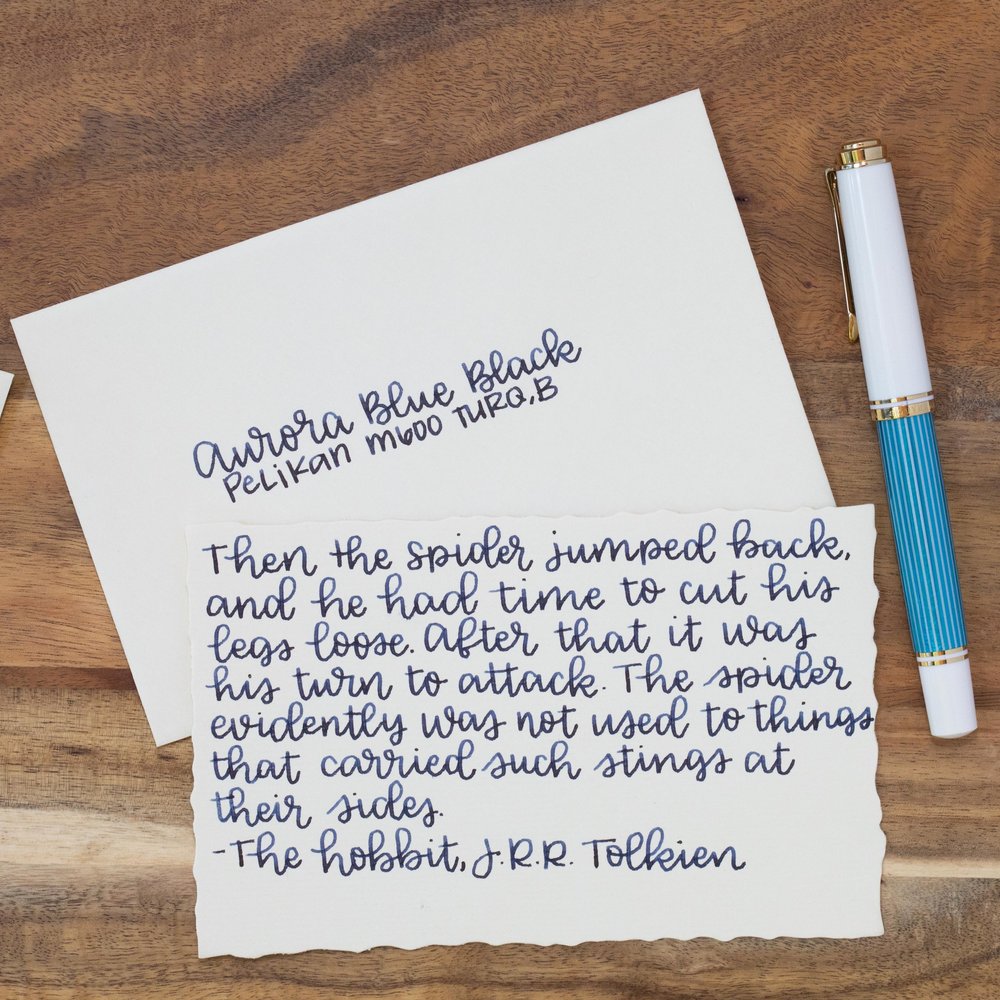 Aurora Blue Black
Pelikan m600 Turq, B
Then the spider jumped back,
and he had time to cut his
legs loose. After that it was
his turn to attack. The spider
evidently was not used to things
that carried such stings at
their sides.
-The hobbit, J.R.R. Tolkien